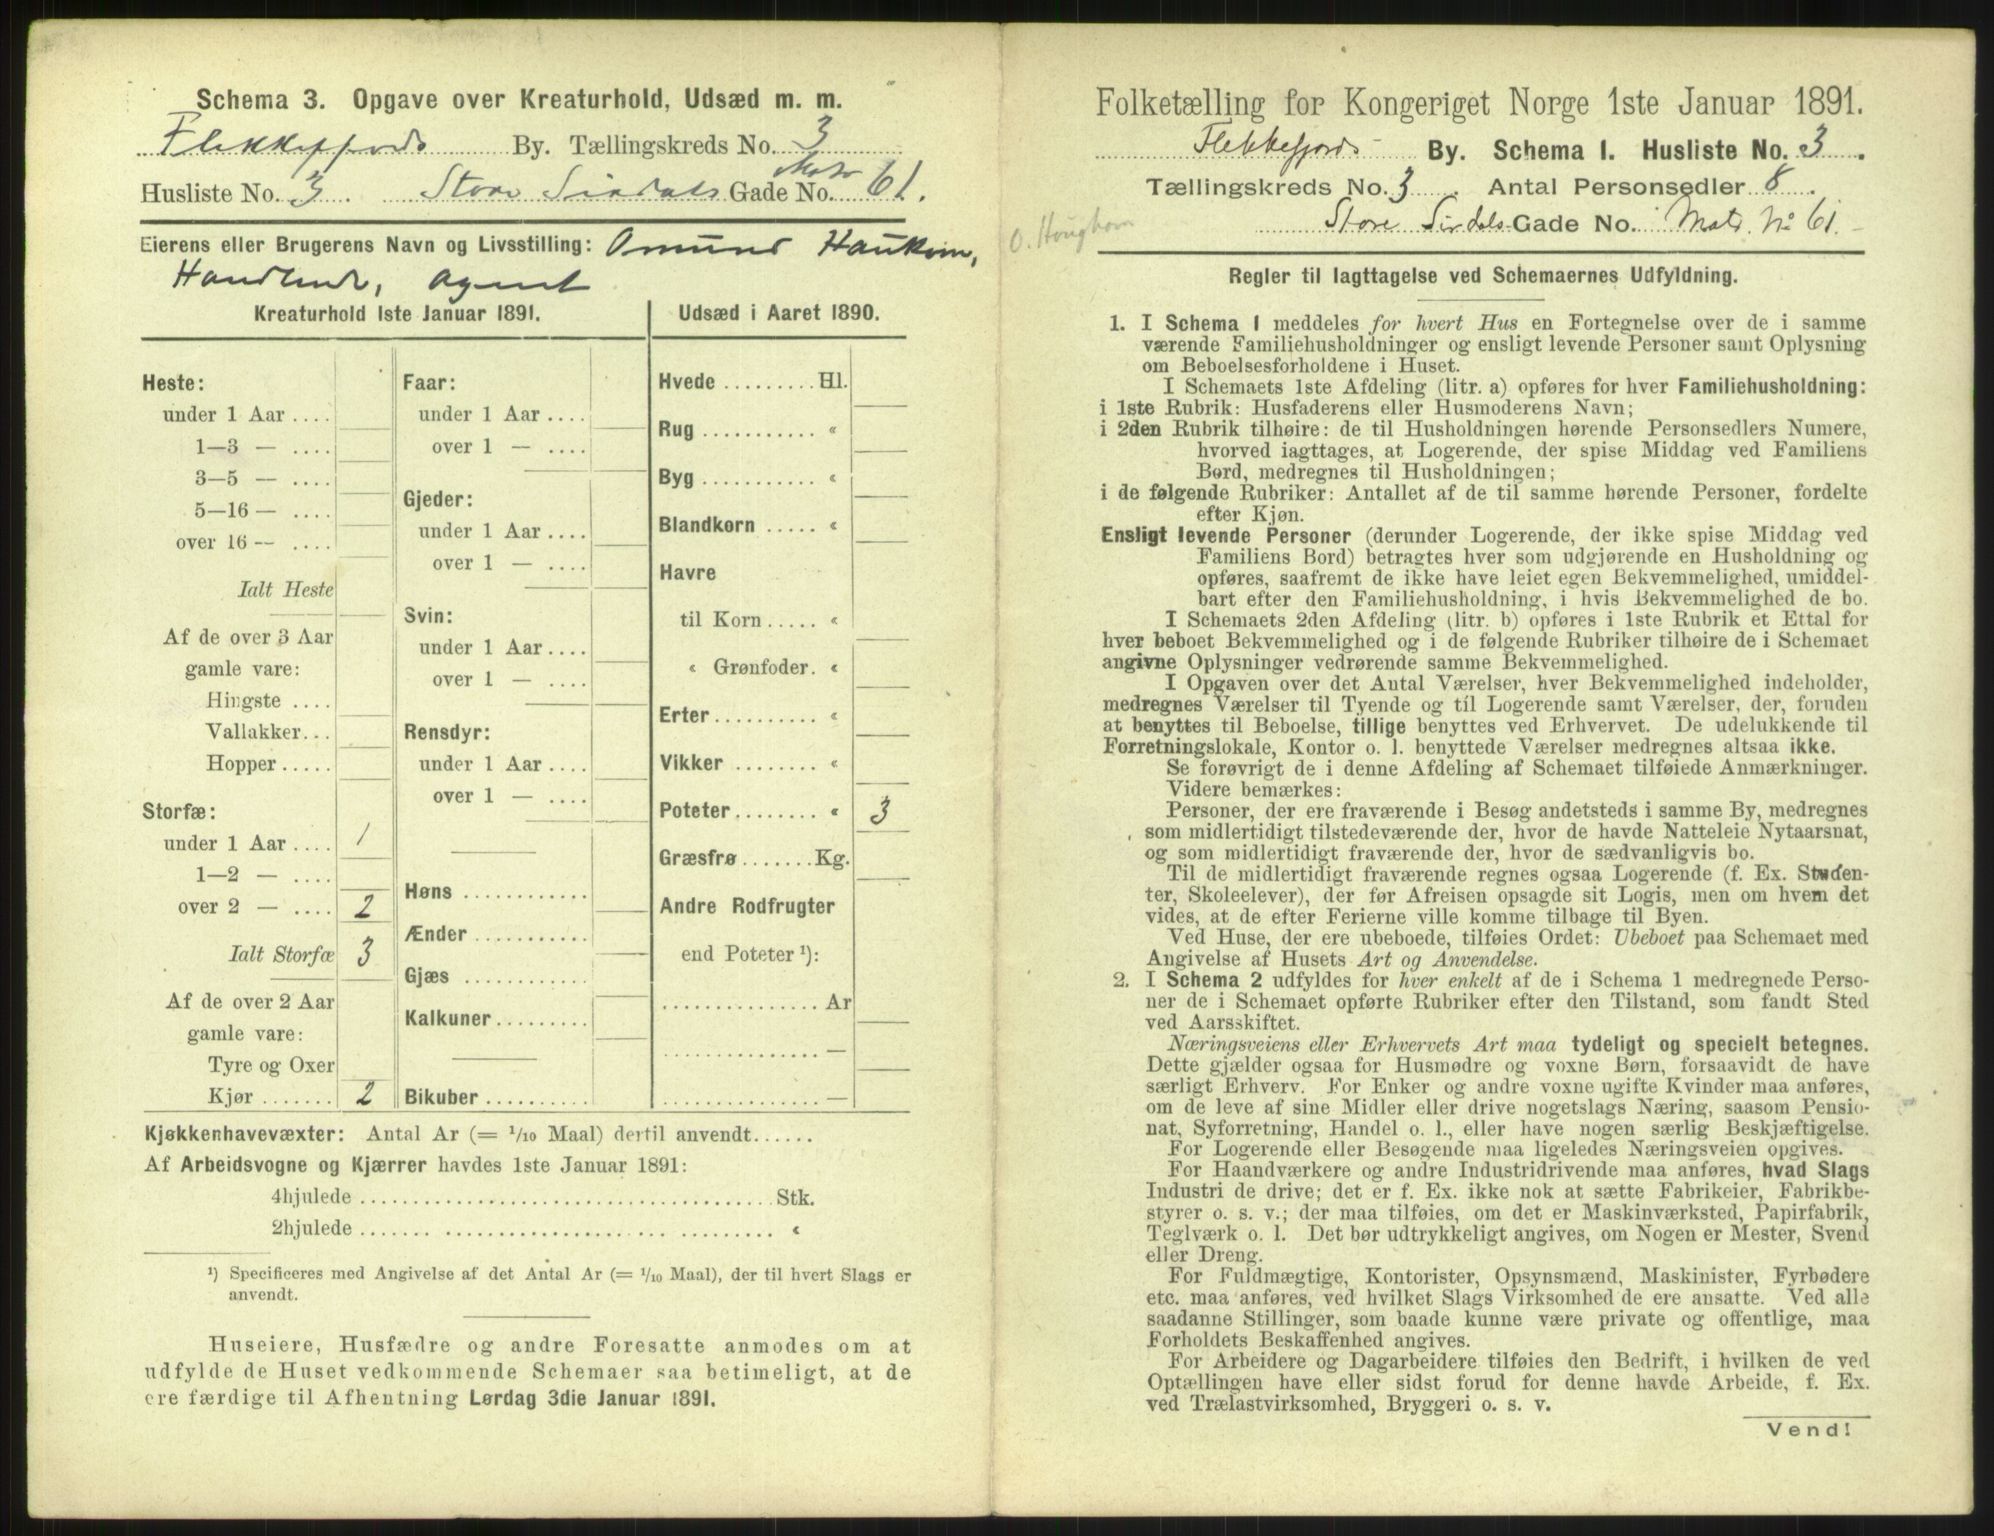 Schema 3. Opgave over Kreaturhold, Udsæd m. m.
Flekkefjords By. Tællingskreds No. 3
Husliste No. 3 . Store Sirdals Gade No. Matr 61.
Eierens eller Brugerens Navn og Livsstilling: Omund Haukom,
Handlende, Agent
Kreaturhold 1ste Januar 1891.
Heste:
under 1 Aar ....
1—3 — ....
3—5 — ....
5—16 — ....
over 16 — ....
Ialt Heste
Af de over 3 Aar
gamle vare:
Hingste ....
Vallakker...
Hopper .....
Storfæ:
under 1 Aar .... 1
1—2 — ....
over 2 — .... 2
Ialt Storfæ 3
Af de over 2 Aar
gamle vare:
Tyre og Oxer
Kjør ....... 2
Faar:
under 1 Aar ....
over 1 — ....
Gjeder:
under 1 Aar ....
over 1 — ....
Svin:
under 1 Aar ....
over 1 — ....
Rensdyr:
under 1 Aar ....
over 1 — ....
Høns ............
Ænder ...........
Gjæs ............
Kalkuner .........
Bikuber ..........
Udsæd i Aaret 1890.
Hvede ......... Hl.
Rug ........... «
Byg ........... «
Blandkorn ..... «
Havre
til Korn ..... «
« Grønfoder. «
Erter .......... «
Vikker ........ «
Poteter ........ « 3
Græsfrø ....... Kg.
Andre Rodfrugter
end Poteter ¹):
............... Ar
............... —
............... —
Kjøkkenhavevæxter: Antal Ar (= 1/10 Maal) dertil anvendt......
Af Arbeidsvogne og Kjærrer havdes 1ste Januar 1891:
4hjulede ........................................ Stk.
2hjulede ........................................ «
¹) Specificeres med Angivelse af det Antal Ar (= 1/10 Maal), der til hvert Slags er
anvendt.
Huseiere, Husfædre og andre Foresatte anmodes om at
udfylde de Huset vedkommende Schemaer saa betimeligt, at de
ere færdige til Afhentning Lørdag 3die Januar 1891.
Folketælling for Kongeriget Norge 1ste Januar 1891.
Flekkefjords By. Schema I. Husliste No. 3 .
Tællingskreds No. 3 . Antal Personsedler 8 .
Store Sirdals Gade No. Matr. No 61.
O. Houghom
Regler til Iagttagelse ved Schemaernes Udfyldning.
1. I Schema 1 meddeles for hvert Hus en Fortegnelse over de i samme
værende Familiehusholdninger og ensligt levende Personer samt Oplysning
om Beboelsesforholdene i Huset.
I Schemaets 1ste Afdeling (litr. a) opføres for hver Familiehusholdning:
i 1ste Rubrik: Husfaderens eller Husmoderens Navn;
i 2den Rubrik tilhøire: de til Husholdningen hørende Personsedlers Numere,
hvorved iagttages, at Logerende, der spise Middag ved Familiens
Bord, medregnes til Husholdningen;
i de følgende Rubriker: Antallet af de til samme hørende Personer, fordelte
efter Kjøn.
Ensligt levende Personer (derunder Logerende, der ikke spise Middag ved
Familiens Bord) betragtes hver som udgjørende en Husholdning og
opføres, saafremt de ikke have leiet egen Bekvemmelighed, umiddel-
bart efter den Familiehusholdning, i hvis Bekvemmelighed de bo.
I Schemaets 2den Afdeling (litr. b) opføres i 1ste Rubrik et Ettal for
hver beboet Bekvemmelighed og i de følgende Rubriker tilhøire de i Schemaet
angivne Oplysninger vedrørende samme Bekvemmelighed.
I Opgaven over det Antal Værelser, hver Bekvemmelighed indeholder,
medregnes Værelser til Tyende og til Logerende samt Værelser, der, foruden
at benyttes til Beboelse, tillige benyttes ved Erhvervet. De udelukkende til
Forretningslokale, Kontor o. l. benyttede Værelser medregnes altsaa ikke.
Se forøvrigt de i denne Afdeling af Schemaet tilføiede Anmærkninger.
Videre bemærkes:
Personer, der ere fraværende i Besøg andetsteds i samme By, medregnes
som midlertidigt tilstedeværende der, hvor de havde Natteleie Nytaarsnat,
og som midlertidigt fraværende der, hvor de sædvanligvis bo.
Til de midlertidigt fraværende regnes ogsaa Logerende (f. Ex. Studen-
ter, Skoleelever), der før Afreisen opsagde sit Logis, men om hvem det
vides, at de efter Ferierne ville komme tilbage til Byen.
Ved Huse, der ere ubeboede, tilføies Ordet: Ubeboet paa Schemaet med
Angivelse af Husets Art og Anvendelse.
2. I Schema 2 udfyldes for hver enkelt af de i Schema 1 medregnede Perso-
ner de i Schemaet opførte Rubriker efter den Tilstand, som fandt Sted
ved Aarsskiftet.
Næringsveiens eller Erhvervets Art maa tydeligt og specielt betegnes.
Dette gjælder ogsaa for Husmødre og voxne Børn, forsaavidt de have
særligt Erhverv. For Enker og andre voxne ugifte Kvinder maa anføres,
om de leve af sine Midler eller drive nogetslags Næring, saasom Pensio-
nat, Syforretning, Handel o. l., eller have nogen særlig Beskjæftigelse.
For Logerende eller Besøgende maa ligeledes Næringsveien opgives.
For Haandværkere og andre Industridrivende maa anføres, hvad Slags
Industri de drive; det er f. Ex. ikke nok at sætte Fabrikeier, Fabrikbe-
styrer o. s. v.; der maa tilføies, om det er Maskinværksted, Papirfabrik,
Teglværk o. l. Det bør udtrykkeligt angives, om Nogen er Mester, Svend
eller Dreng.
For Fuldmægtige, Kontorister, Opsynsmænd, Maskinister, Fyrbødere
etc. maa anføres, ved hvilket Slags Virksomhed de ere ansatte. Ved alle
saadanne Stillinger, som baade kunne være private og offentlige, maa
Forholdets Beskaffenhed angives.
For Arbeidere og Dagarbeidere tilføies den Bedrift, i hvilken de ved
Optællingen have eller sidst forud for denne havde Arbeide, f. Ex.
ved Trælastvirksomhed, Bryggeri o. s. v.
Vend!